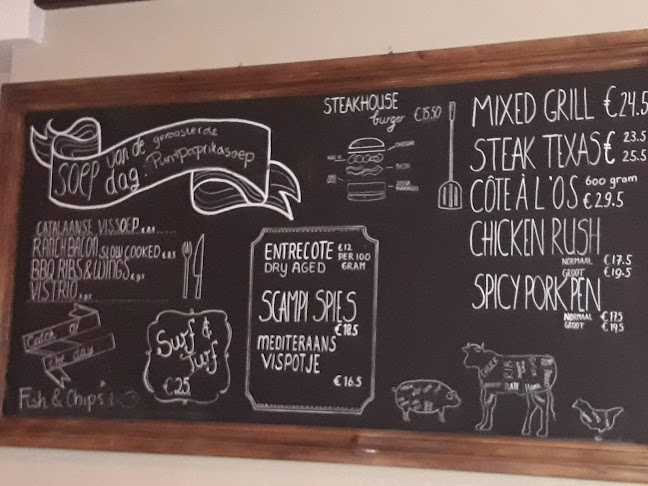 SOEP van de geroosterde
dag: Puntpaprikasoep
CATALAANSE VISSOEP
RANCH BACON SLOW COOKED
BBQ RIBS & WINGS
VISTRIO
Catch of
The day
Fish & Chips
Surf &
Turf
€25
STEAKHOUSE
burger €15.50
ENTRECOTE €12
DRY AGED PER 100
GRAM
SCAMPI SPIES
€18.5
MEDITERAANS
VISPOTJE
€16.5
MIXED GRILL €24.5
STEAK TEXAS € 23.5
25.5
CÔTE À L'OS 600 gram
€29.5
CHICKEN RUSH
NORMAAL €17.5
GROOT €19.5
SPICY PORK PEN
NORMAAL €17.5
GROOT €19.5
CHUCK
RIB